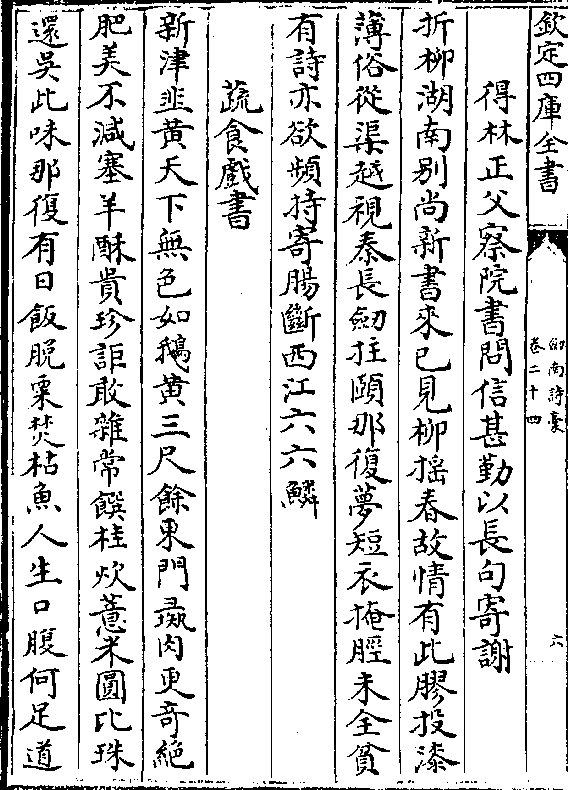 欽定四庫全書
劒南詩藁
卷二十四
六
得林正父察院書問信甚勤以長句寄謝
折柳湖南别尚新書來已見柳揺春故情有此膠投漆
薄俗從渠越視秦長劒拄頤那復夢短衣掩脛未全貧
有詩亦欲頻持寄腸斷西江六六鱗
蔬食戲書
新津韭黄天下無色如鵝黄三尺餘東門彘肉更竒絶
肥美不減塞羊酥貴珍詎敢雜常饌桂炊薏米圓比珠
還吳此味那復有日飯脱粟焚枯魚人生口腹何足道